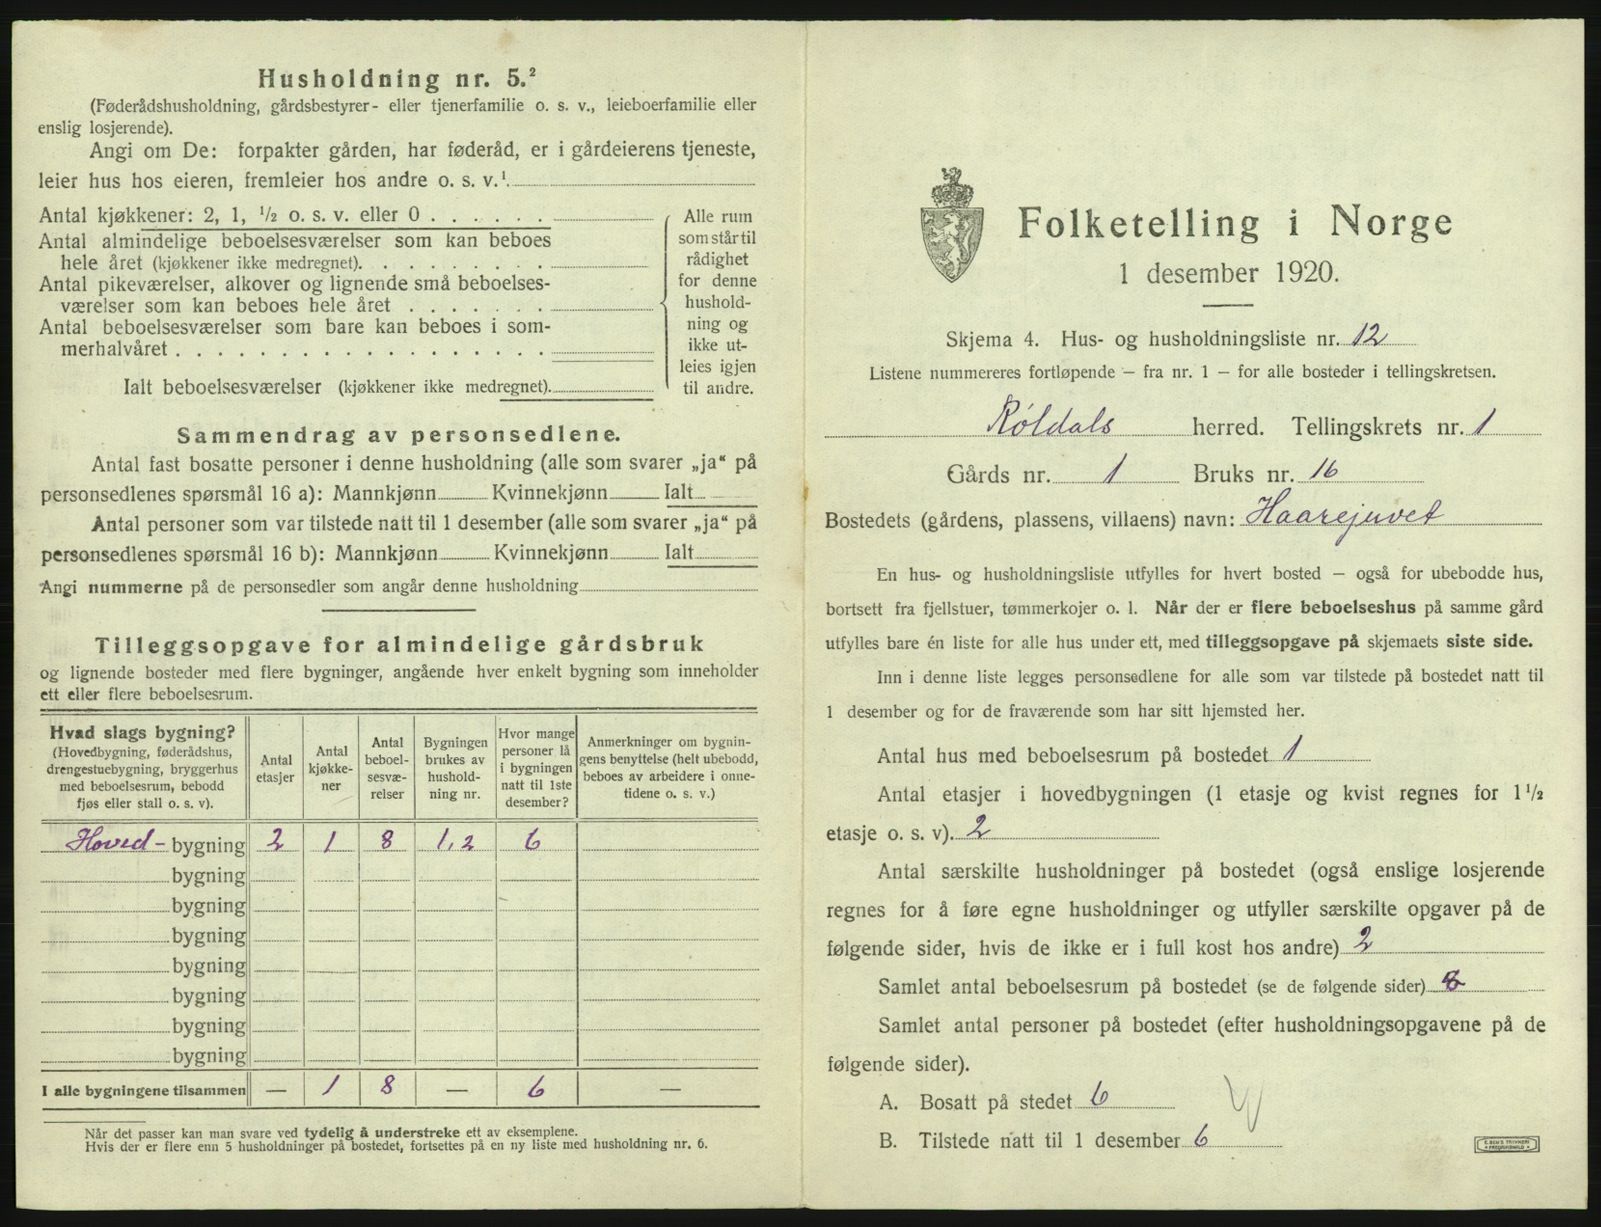 Husholdning nr. 5.²
(Føderådshusholdning, gårdsbestyrer- eller tjenerfamilie o. s. v., leieboerfamilie eller
enslig losjerende).
Angi om De: forpakter gården, har føderåd, er i gårdeierens tjeneste,
leier hus hos eieren, fremleier hos andre o. s. v.¹
Antal kjøkkener: 2, 1, ½ o. s. v. eller 0 . . . . . .
Antal almindelige beboelsesværelser som kan beboes
hele året (kjøkkener ikke medregnet). . . . . . . . .
Antal pikeværelser, alkover og lignende små beboelses-
værelser som kan beboes hele året . . . . . . .
Antal beboelsesværelser som bare kan beboes i som-
merhalvåret . . . . . . . . . . . . . . . . . .
Ialt beboelsesværelser (kjøkkener ikke medregnet).
Alle rum
som står til
rådighet
for denne
hushold-
ning og
ikke ut-
leies igjen
til andre.
Sammendrag av personsedlene.
Antal fast bosatte personer i denne husholdning (alle som svarer „ja“ på
personsedlenes spørsmål 16 a): Mannkjønn Kvinnekjønn Ialt
Antal personer som var tilstede natt til 1 desember (alle som svarer „ja“ på
personsedlenes spørsmål 16 b): Mannkjønn Kvinnekjønn Ialt
Angi nummerne på de personsedler som angår denne husholdning
Tilleggsopgave for almindelige gårdsbruk
og lignende bosteder med flere bygninger, angående hver enkelt bygning som inneholder
ett eller flere beboelsesrum.
Hvad slags bygning?
(Hovedbygning, føderådshus,
drengestuebygning, bryggerhus
med beboelsesrum, bebodd
fjøs eller stall o. s. v).
Antal
etasjer
Antal
kjøkke-
ner
Antal
beboel-
sesvæ-
relser
Bygningen
brukes av
hushold-
ning nr.
Hvor mange
personer lå
i bygningen
natt til 1ste
desember?
Anmerkninger om bygnin-
gens benyttelse (helt ubebodd,
beboes av arbeidere i onne-
tidene o. s. v.)
Hoved- bygning 2 1 8 1, 2 6
bygning
bygning
bygning
bygning
bygning
bygning
bygning
I alle bygningene tilsammen — 1 8 — 6 —
Når det passer kan man svare ved tydelig å understreke ett av eksemplene.
Hvis der er flere enn 5 husholdninger på bostedet, fortsettes på en ny liste med husholdning nr. 6.
Folketelling i Norge
1 desember 1920.
Skjema 4. Hus- og husholdningsliste nr. 12
Listene nummereres fortløpende – fra nr. 1 – for alle bosteder i tellingskretsen.
Røldals herred. Tellingskrets nr. 1
Gårds nr. 1 Bruks nr. 16
Bostedets (gårdens, plassens, villaens) navn: Haarejuvet
En hus- og husholdningsliste utfylles for hvert bosted – også for ubebodde hus,
bortsett fra fjellstuer, tømmerkojer o. l. Når der er flere beboelseshus på samme gård
utfylles bare én liste for alle hus under ett, med tilleggsopgave på skjemaets siste side.
Inn i denne liste legges personsedlene for alle som var tilstede på bostedet natt til
1 desember og for de fraværende som har sitt hjemsted her.
Antal hus med beboelsesrum på bostedet 1
Antal etasjer i hovedbygningen (1 etasje og kvist regnes for 1½
etasje o. s. v). 2
Antal særskilte husholdninger på bostedet (også enslige losjerende
regnes for å føre egne husholdninger og utfyller særskilte opgaver på de
følgende sider, hvis de ikke er i full kost hos andre) 2
Samlet antal beboelsesrum på bostedet (se de følgende sider) 8
Samlet antal personer på bostedet (efter husholdningsopgavene på de
følgende sider).
A. Bosatt på stedet 6
B. Tilstede natt til 1 desember 6